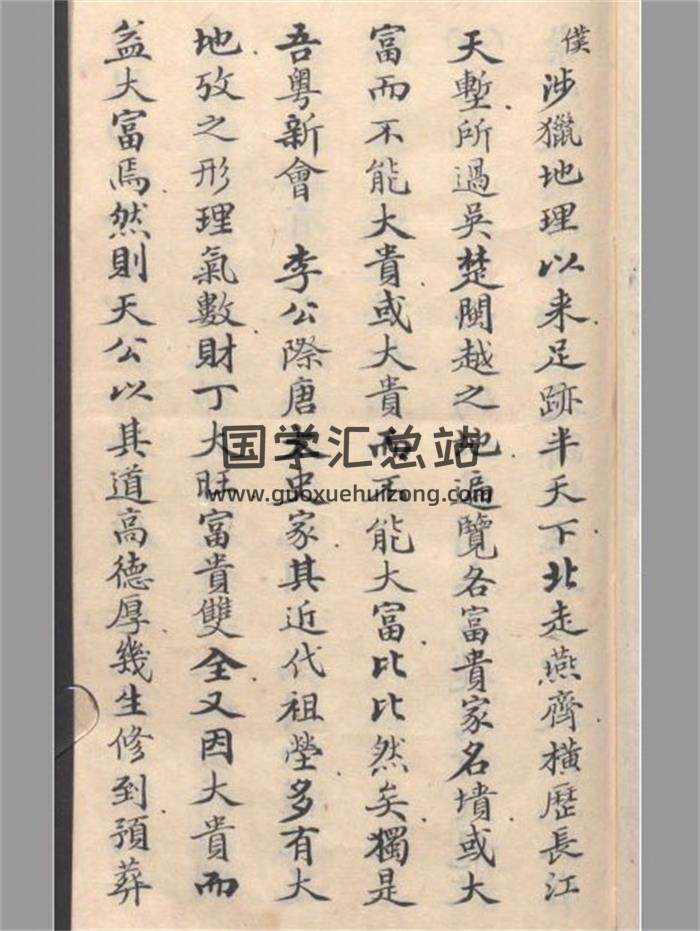 僕涉獵地理以来足跡半天下北走燕齊橫歷長江
天塹所過吳楚閩越之地遍覽各富貴家名墳或大
富而不能大貴或大貴而不能大富比比然矣獨是
吾粵新會 李公際唐太史家其近代祖塋多有大
地攷之形理氣數財丁大旺富貴雙全又因大貴而
益大富焉然則天公以其道高德厚幾生修到預葬
国学汇总站
www.guoxuehuizong.com